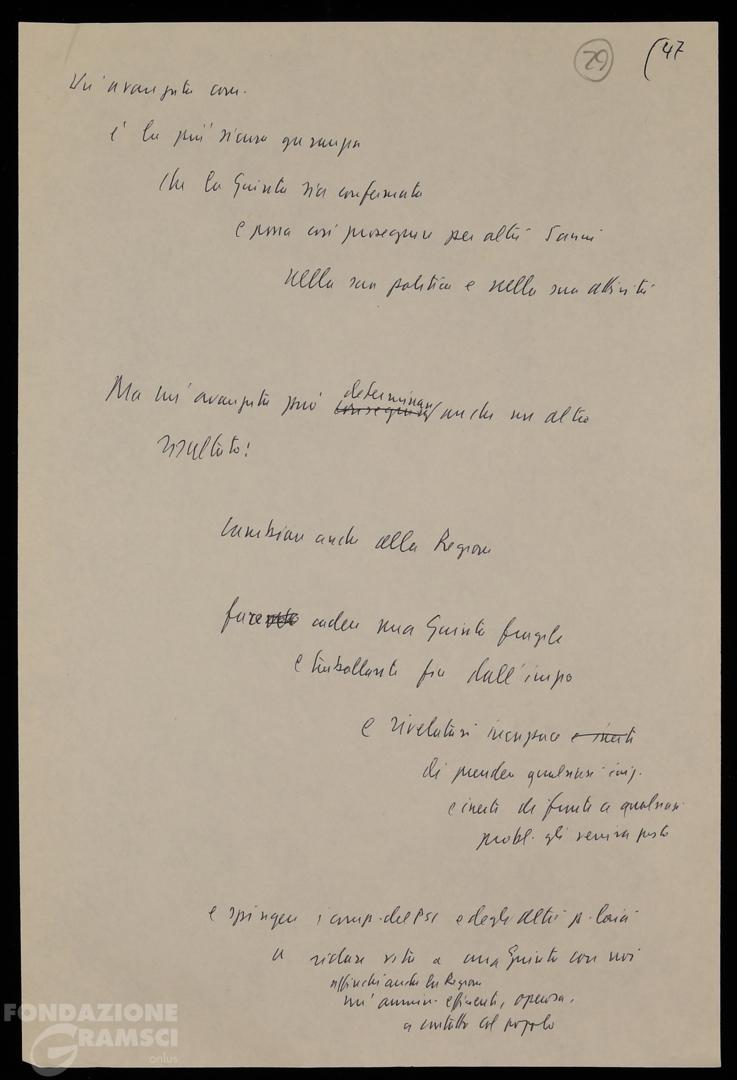 29 47
Un' avanzata com.
è la più sicura garanzia
che la Giunta sia confermata
e possa così proseguire per altri 5 anni
nella sua politica e nella sua attività
Ma un' avanzata può determinare conseguire anche un altro
risultato!
Cambiare anche alla Regione
fare cadere una Giunta fragile
e traballante fin dall'inizio
e rivelatasi incapace e inerti
di prendere qualsiasi iniz.
e inerte di fronte a qualsiasi
probl. gli veniva posto
e spingere i comp. del PSI e degli altri p. laici
a ridare vita a una Giunta con noi
affinchè anche la Regione
un' ammin. efficiente, operosa,
a contatto col popolo
FONDAZIONE
GRAMSCI
onlus